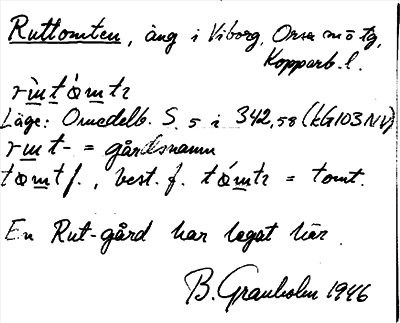 Ruttomten, äng i Viborg, Orsa m o tg,
Kopparb. l.
Läge: Omedelb. S. 5 i 342,58 (kG103NV)
= gårdsnamn
f., best. f. = tomt.
En Rut-gård har legat här.
B. Granholm 1946